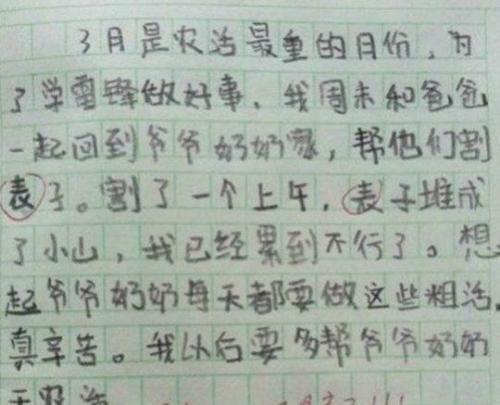 3月是农活最重的月份，为
了学雷锋做好事，我周末和爸爸
一起回到爷爷奶奶家，帮他们割
表子。割了一个上午，表子堆成
了小山，我已经累到不行了。想
起爷爷奶奶每天都要做这些粗活，
真辛苦。我以后要多帮爷爷奶奶
干农活